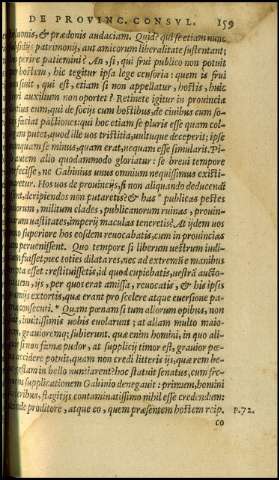 DE PROVINC. CONSVL. 159
uonis, & prædonis audaciam. Quid? qui se etiam nunc
patrimonij, aut amicorum liberalitate sustentant;
perire patiemini? An, si, qui frui publico non potuit
hostem, hic tegitur ipsa lege censoria: quem is frui
suit, qui est, etiam si non appellatur, hostis, huic
auxilium non oportet? Retinete igitur in prouincia
eum, qui de socijs cum hostibus, de ciuibus cum so-
faciat pactiones: qui hoc etiam se pluris esse quam col-
putet, quod ille uos tristitia, uultuque deceperit; ipse
quam se minus, quam erat, nequam esse simularit. Pi-
autem alio quodammodo gloriatur: se breui tempore
fecisse, ne Gabinius unus omnium nequissimus existi-
retur. Hos uos de prouincijs, si non aliquando deducendi
deripiendos non putaretis? & has publicas pestes
militum clades, publicanorum ruinas, prouin-
uastitates, imperij maculas teneretis? At ijdem uos
superiore hos eosdem reuocabatis, cum in prouincias
peruenissent. Quo tempore si liberum uestrum iudi-
fuisset; nec toties dilata res, nec ad extremum e manibus
esset: restituissetis, id quod cupiebatis, uestrã aucto-
ijs, per quos erat amissa, reuocatis, & his ipsis
extortis, quæ erant pro scelere atque euersione pa-
consecuti. * Quam pœnam si tum aliorum opibus, non
inuitissimis uobis euolarunt; at aliam multo maio-
grauioremq; subierunt. quæ enim homini, in quo ali-
si non famæ pudor, at supplicij timor est, grauior pœ-
accidere potuit, quam non credi litteris ijs, quæ rem be-
gestam in bello nuntiarent? hoc statuit senatus, cum fre-
supplicationem Gabinio denegauit: primum, homini
flagitijs contaminatissimo nihil esse credendum:
proditore, atque eo, quem præsentem hostem reip. P. 72.
co